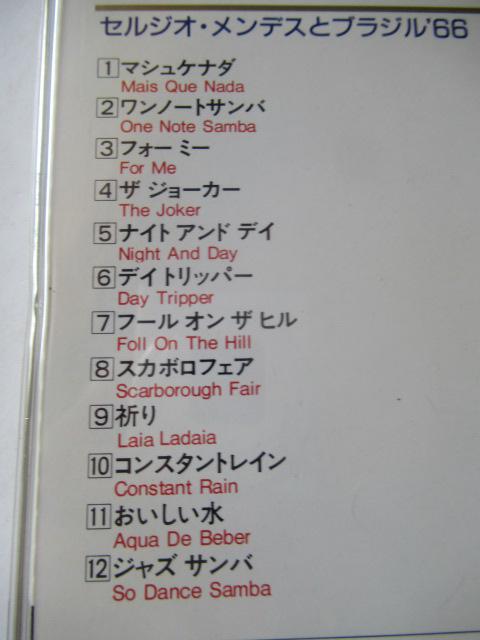 セルジオ・メンデスとブラジル'66
1 マシュケナダ
Mais Que Nada
2 ワンノートサンバ
One Note Samba
3 フォー ミー
For Me
4 ザ ジョーカー
The Joker
5 ナイト アンド デイ
Night And Day
6 デイトリッパー
Day Tripper
7 フール オン ザ ヒル
Foll On The Hill
8 スカボロフェア
Scarborough Fair
9 祈り
Laia Ladaia
10 コンスタントレイン
Constant Rain
11 おいしい水
Aqua De Beber
12 ジャズ サンバ
So Dance Samba